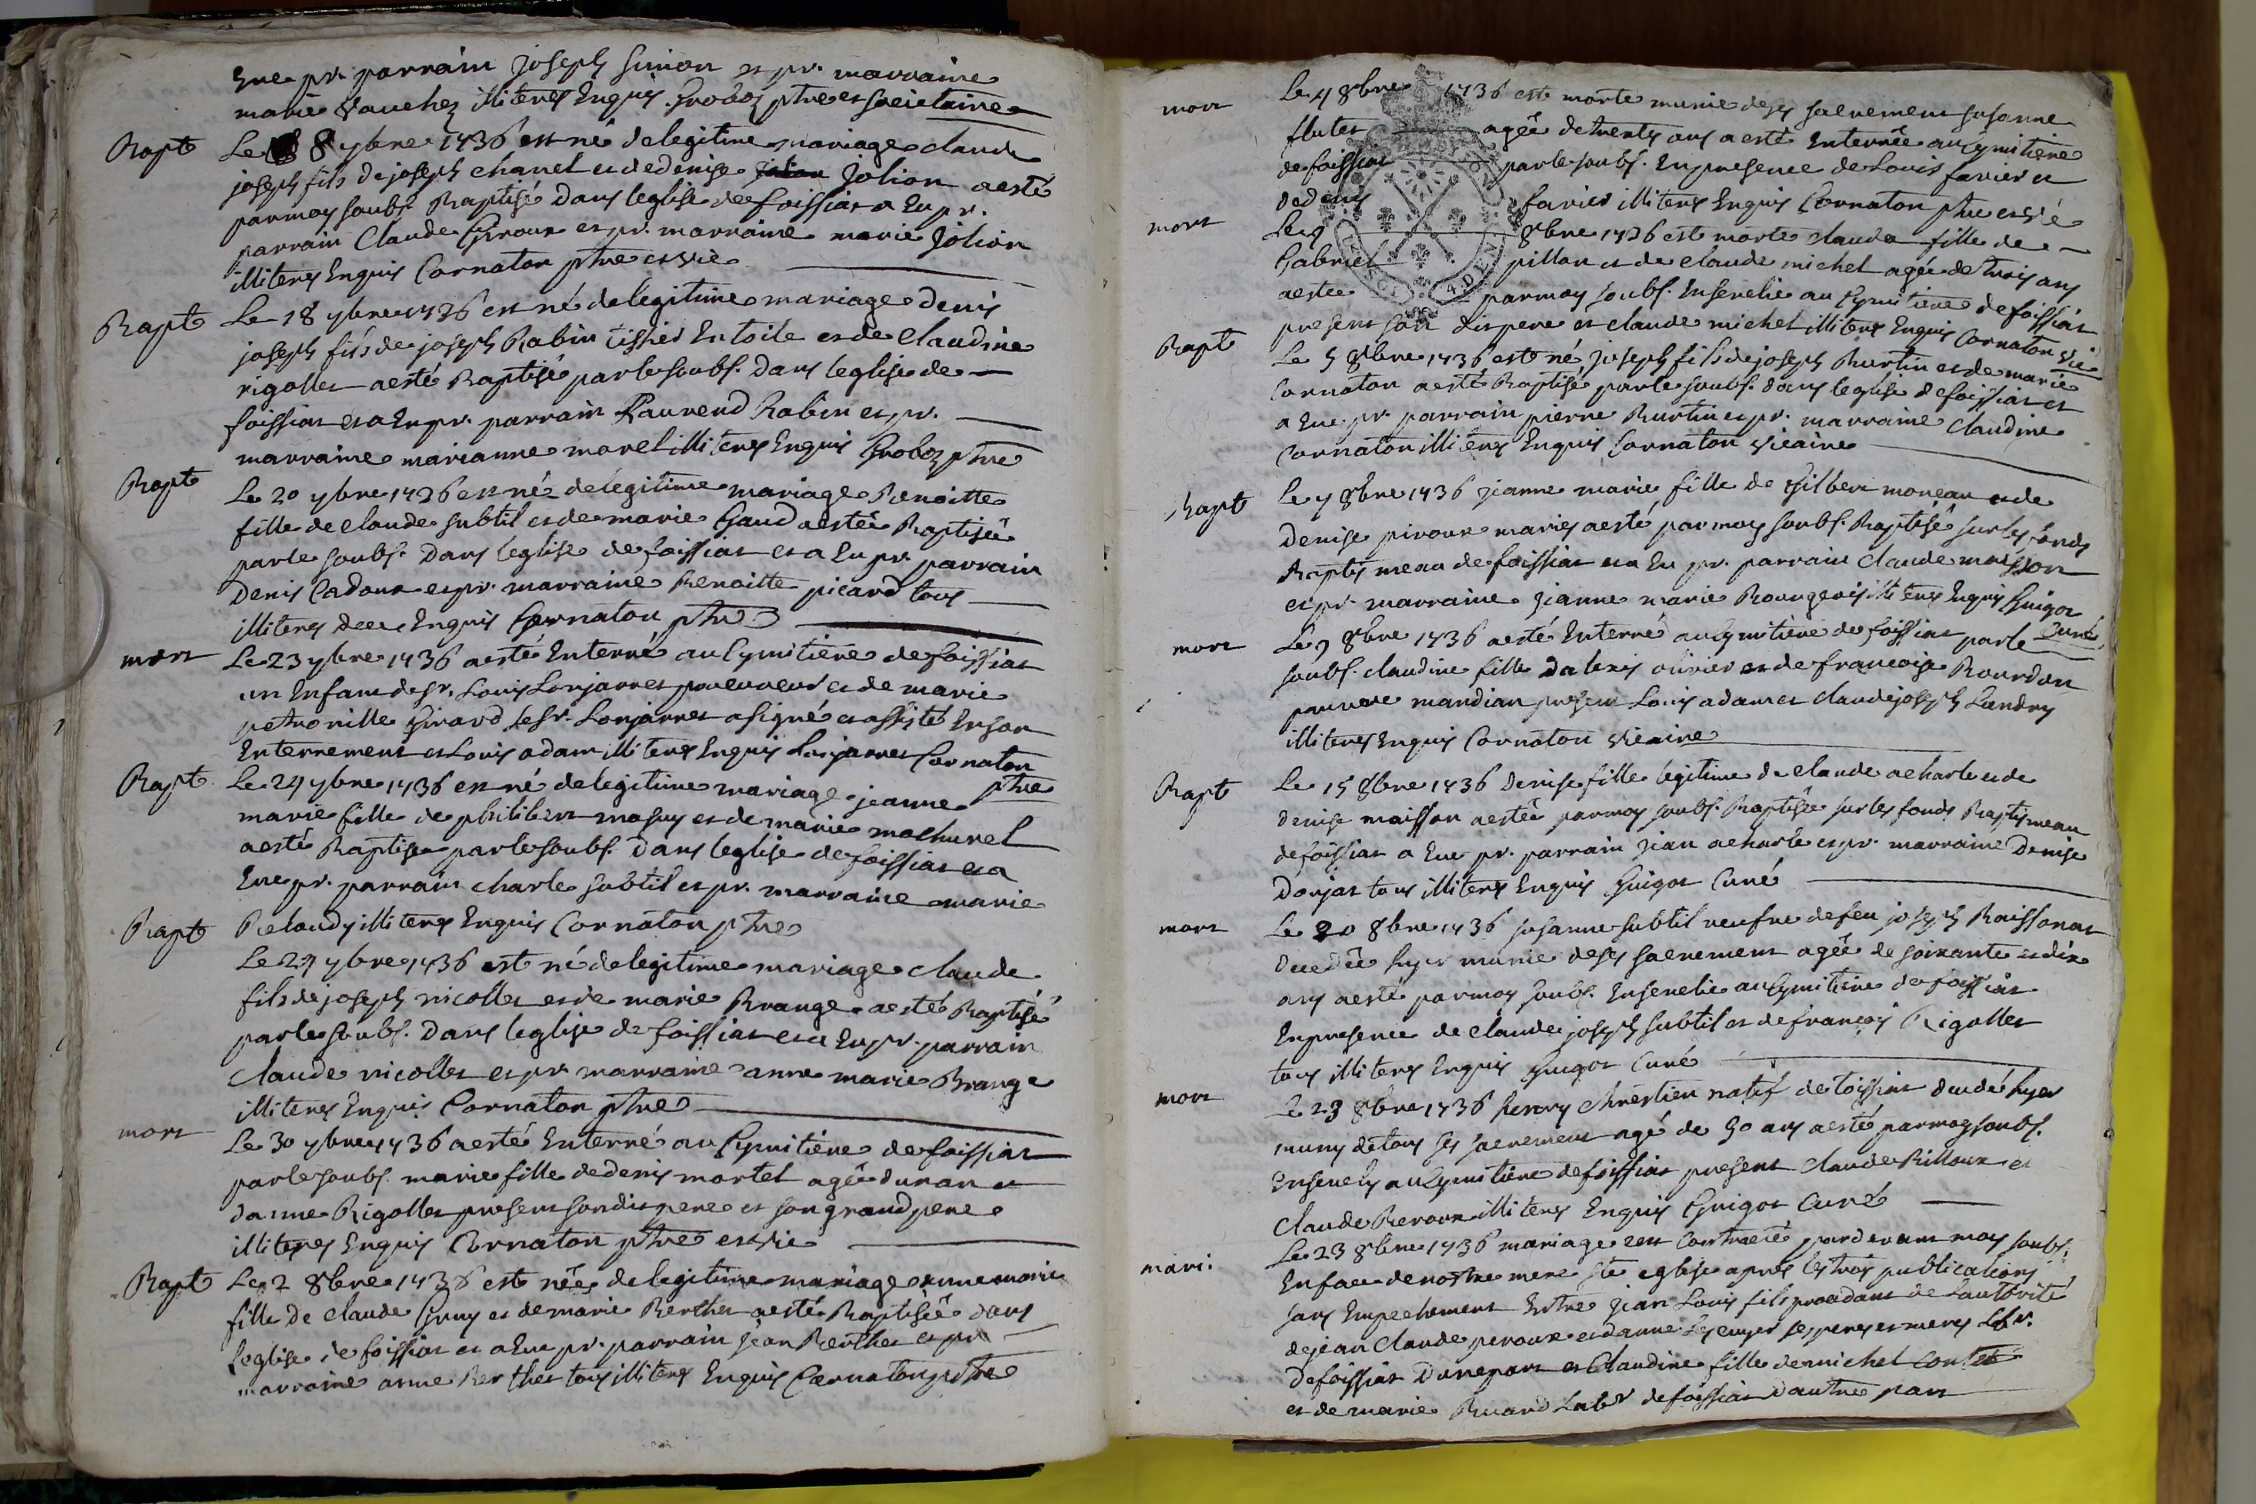 Eue pr. parrain joseph simon et pr. marraine
marie Vauchez illiterés Enquis. Groboz ptre et societaire
Bapt Le 8 7bre 1736 est né de legitime mariage claude
joseph fils de joseph chanel et de denise jolion a esté
par moy soubs. Baptisé Dans leglise de foissiat a Eu pr.
parrain Claude Giroux et pr. marraine marie Jolion
illiterés Enquis Cornaton ptre et vic
Bapt Le 18 7bre 1736 est né de legitime mariage denis
joseph fils de joseph Rabin tissier En toile et de Claudine
rigollet a esté Baptisé par le soubs. Dans leglise de
foissiat et a Eu pr. parrain Laurend Rabin et pr.
marraine marianne morel illiterés Enquis Groboz ptre
Bapt Le 20 7bre 1736 est né de légitime mariage Benoitte
fille de claude subtil et de marie Gaud a estée Baptiséé
par le soubs. Dans leglise de foissiat et a Eu pr. parrain
Denis Cadoux et pr. marraine Benoitte picard tous
illiterés Enquis Cornaton ptre
mort Le 23 7bre 1736 a esté Enterré au Cymitiere de foissiat
un Enfant de sr. Louis Lonjarret et de marie
petronille Girard le sr. Lonjarret a signé et assisté En son
Enterrement et Louis adam illiterés Enquis Lonjarret Cornaton
ptre
Bapt Le 24 7bre 1736 est né de legitime mariage jeanne
marie fille de philibert masuy et de marie mathurel
a esté Baptisé par le soubs. Dans leglise de foissiat et a
Eue pr. parrain charle subtil et pr. marraine marie
Belaudy illiterés Enquis Cornaton ptre
Bapt Le 27 7bre 1736 est né de legitime mariage claude
fils de joseph nicollet et de marie Brange a esté Baptisé
par le soubs. Dans leglise de foissiat et a Eu pr. parrain
Claude nicollet et pr. marraine anne marie Brange
illiterés Enquis Cornaton ptre
mort Le 30 7bre 1736 a esté Enterré au Cymitiere de foissiat
par le soubs. marie fille de denis mortel agéé d'un an et
danne Rigollet present son dit pere et son grand pere
illiterés Enquis Cornaton ptre et vic
Bapt Le 2 8bre 1736 est néé de legitime mariage anne marie
fille de claude Guy et de marie Berthet a esté Baptiséé dans
leglise de foissiat et a Eue pr. parrain jean Berthet et pr
marraine anne Berthet tous illiterés Enquis Cornaton ptre
mort Le 4 8bre 1736 est morte munie de ses sacrement susanne
flutet agéé de trente ans a esté Enterrée au Cymitiere
de foissiat par le soubs. En presence de Louis favier et
de denis favier illiterés Enquis Cornaton ptre et vic
mort Le 9 8bre 1736 est morte claude fille de
Gabriel pillon et de claude michel agée de trois ans
a estée par moy soubs. Ensevelie au Cymitiere de foissiat
present son dit pere et claude michel illiterés Enquis Cornaton vic
Bapt Le 5 8bre 1736 est né joseph fils de joseph Burtin et de marie
Cornaton a esté Baptisé par le soubs. dans leglise de foissiat et
a Eue pr. parrain pierre Burtin et pr. marraine Claudine
Cornaton illiterés Enquis Cornaton vicaire
Bapt Le 7 8bre 1736 jeanne marie fille de Gilbert moreau et de
Denise piroux mariés a esté par moy soubs. Baptisé sur les fonds
Baptismeau de foissiat et a Eu pr. parrain Claude moisson
et pr. marraine jeanne marie Bourgeois illiterés Enquis Guigot
Curé
mort Le 9 8bre 1736 a esté Enterré au Cymitiere de foissiat par le
soubs. claudine fille dalexis olivier et de francoise Bourdon
pauvre mandian present Louis adam et claude joseph Landry
illiterés Enquis Cornaton vicaire
Bapt Le 15 8bre 1736 denise fille legitime de claude acharle et de
denise maisson a estéé par moy soubs. Baptiséé sur les fonds Baptismeau
de foissiat a Eue pr. parrain jean acharle et pr. marraine Denise
Donjat tous illiterés Enquis Guigot Curé
mort Le 20 8bre 1736 susanne subtil veufve de feu joseph Boissonat
decedéé hyer munie de ses sacrement agéé de soixante et dix
ans a esté par moy soubs. Ensevelie au Cymitiere de foissiat
En presence de claude joseph subtil et de françois Rigollet
tous illiterés Enquis Guigot Curé
mort Le 23 8bre 1736 henry chrestien natif de foissiat decedé hyer
muny de tous ses sacrement agé de 50 ans a esté par moy soubs.
Ensevely au Cymitiere de foissiat present Claude Billoux et
Claude Beroux illiterés Enquis Guigot Curé
mari. Le 23 8bre 1736 mariage cest Contracté pardevant moy soubs.
En face de nostre mere ste eglise après les trois publications
sans Empechement Entre jean Louis fils procedant de Lauthorité
de jean Claude peroux et danne ses pere et mere Lbr.
de foissiat Dune part et Claudine fille de michel
et de marie Buard Labr de foissiat dautre part